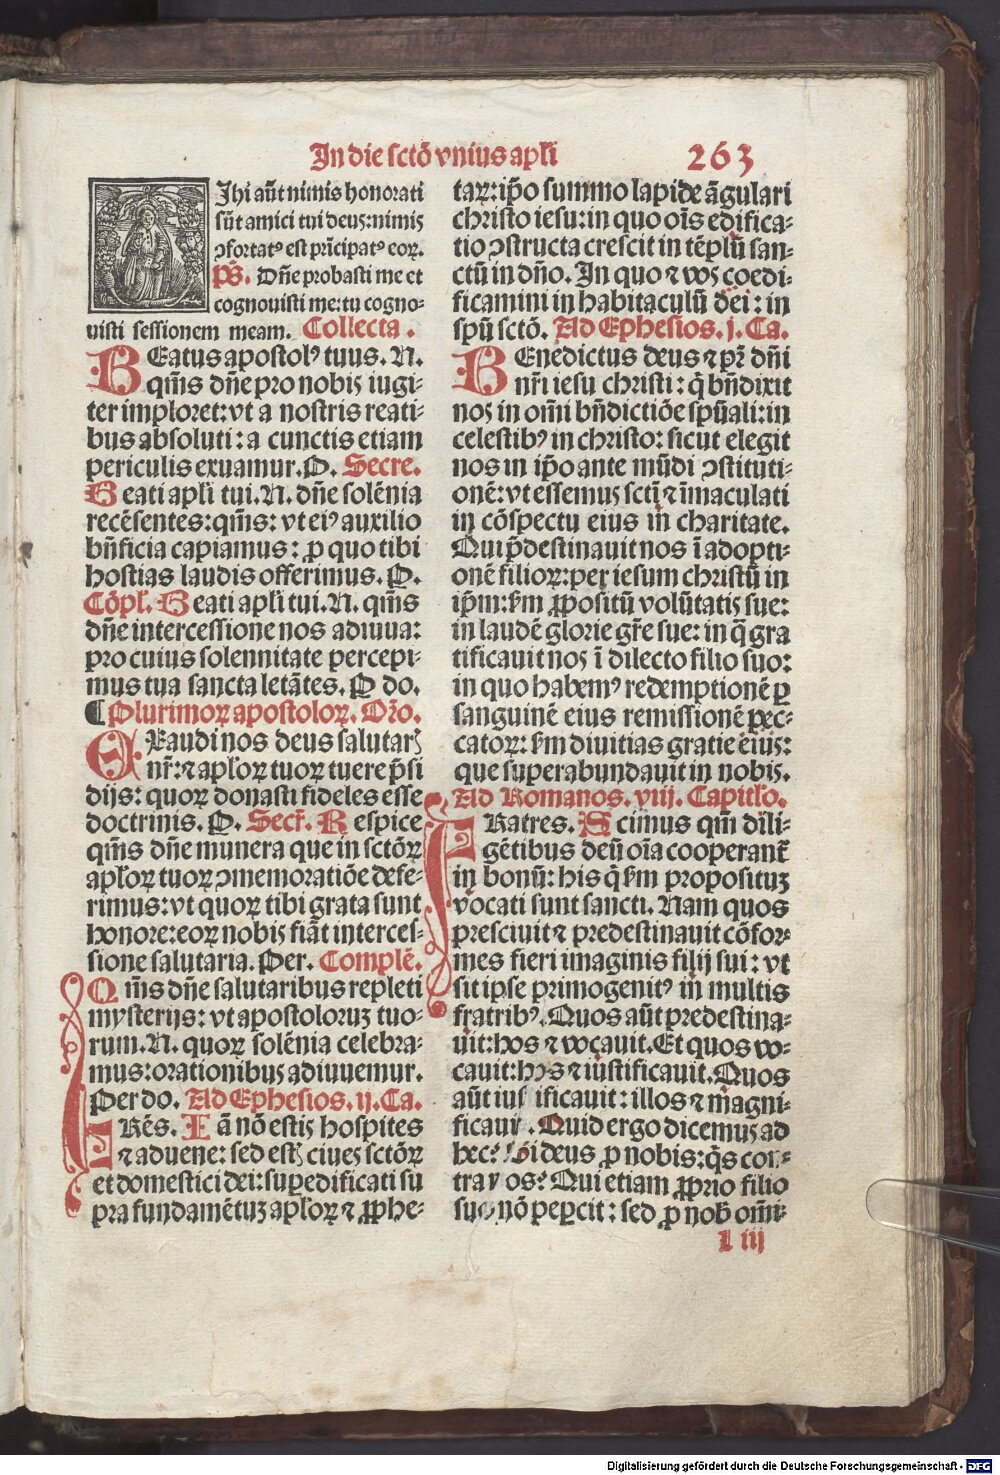 In die sctõ vnius apłi 263
Ihi aũt nimis honorati
sũt amici tui deus: nimis
ↄfortatꝰ est prĩcipatꝰ eoꝝ.
ps̃. Dñe probasti me et
cognouisti me: tu cogno-
uisti sessionem meam. Collecta.
BEatus apostolꝰ tuus. N.
qm̃s dñe pro nobis iugi-
ter imploret: vt a nostris reati-
bus absoluti: a cunctis etiam
periculis exuamur. P. Secre.
Beati apłi tui. N. dñe solẽnia
recẽsentes: qm̃s: vt eiꝰ auxilio
bñficia capiamus: ꝓ quo tibi
hostias laudis offerimus. P.
Cõpł. Beati apłi tui. N. qm̃s
dñe intercessione nos adiuua:
pro cuius solennitate percepi-
mus tua sancta letãtes. P do.
¶ Plurimoꝝ apostoloꝝ. Oro.
EXaudi nos deus salutarꝭ
nr̃: ⁊ apłoꝝ tuoꝝ tuere p̃si
dijs: quoꝝ donasti fideles esse
doctrinis. P. Secr̃. Respice
qm̃s dñe munera que in sctõꝝ
apłoꝝ tuoꝝ ↄmemoratiõe defe-
rimus: vt quoꝝ tibi grata sunt
honore: eoꝝ nobis fiãt interces-
sione salutaria. Per. Complẽ.
Qm̃s dñe salutaribus repleti
mysterijs: vt apostoloruꝫ tuo-
rum. N. quoꝝ solẽnia celebra-
mus: orationibus adiuuemur.
Per do. Ad Ephesios. ij. Ca.
FRẽs. Iã nõ estis hospites
⁊ aduene: sed estꝭ ciues sctõꝝ
et domestici dei: suꝑedificati su
pra fundamẽtuꝫ apłoꝝ ⁊ ꝓphe-
taꝝ: ip̃o summo lapide ãgulari
christo iesu: in quo oĩs edifica-
tio ↄstructa crescit in tẽplũ san-
ctũ in dño. In quo ⁊ vos coedi-
ficamini in habitaculũ dei: in
spũ sctõ. Ad Ephesios. j. Ca.
BEnedictus deus ⁊ pr̃ dñi
nr̃i iesu christi: q̃ bñdixit
nos in omĩ bñdictiõe spũali: in
celestibꝰ in christo: sicut elegit
nos in ip̃o ante mũdi ↄstituti-
onẽ: vt essemus sctĩ ⁊ ĩmaculati
in cõspectu eius in charitate.
Qui p̃destinauit nos ĩ adopti-
onẽ filioꝝ: per iesum christũ in
ip̃m: s̃m ꝓpositũ volũtatis sue:
in laudẽ glorie gr̃e sue: in q̃ gra
tificauit nos ĩ dilecto filio suo:
in quo habemꝰ redemptionẽ ꝑ
sanguinẽ eius remissionẽ pec-
catoꝝ: s̃m diuitias gratie eius:
que superabundauit in nobis.
Ad Romanos. viij. Capitło.
FRatres. Scimus qm̃ dili-
gẽtibus deũ oĩa cooperant̃
in bonũ: his q̃ s̃m proposituꝫ
vocati sunt sancti. Nam quos
presciuit ⁊ predestinauit cõfor-
mes fieri imaginis filij sui: vt
sit ipse primogenitꝰ in multis
fratribꝰ. Quos aũt predestina-
uit: hos ⁊ vocauit. Et quos vo-
cauit: hos ⁊ iustificauit. Quos
aũt iustificauit: illos ⁊ magni-
ficauit. Quid ergo dicemus ad
hec? Si deus ꝓ nobis: q̃s con-
tra nos? Qui etiam ꝓprio filio
suo nõ peꝑcit: sed ꝓ nob̃ omĩ-
L iij
Digitalisierung gefördert durch die Deutsche Forschungsgemeinschaft - DFG